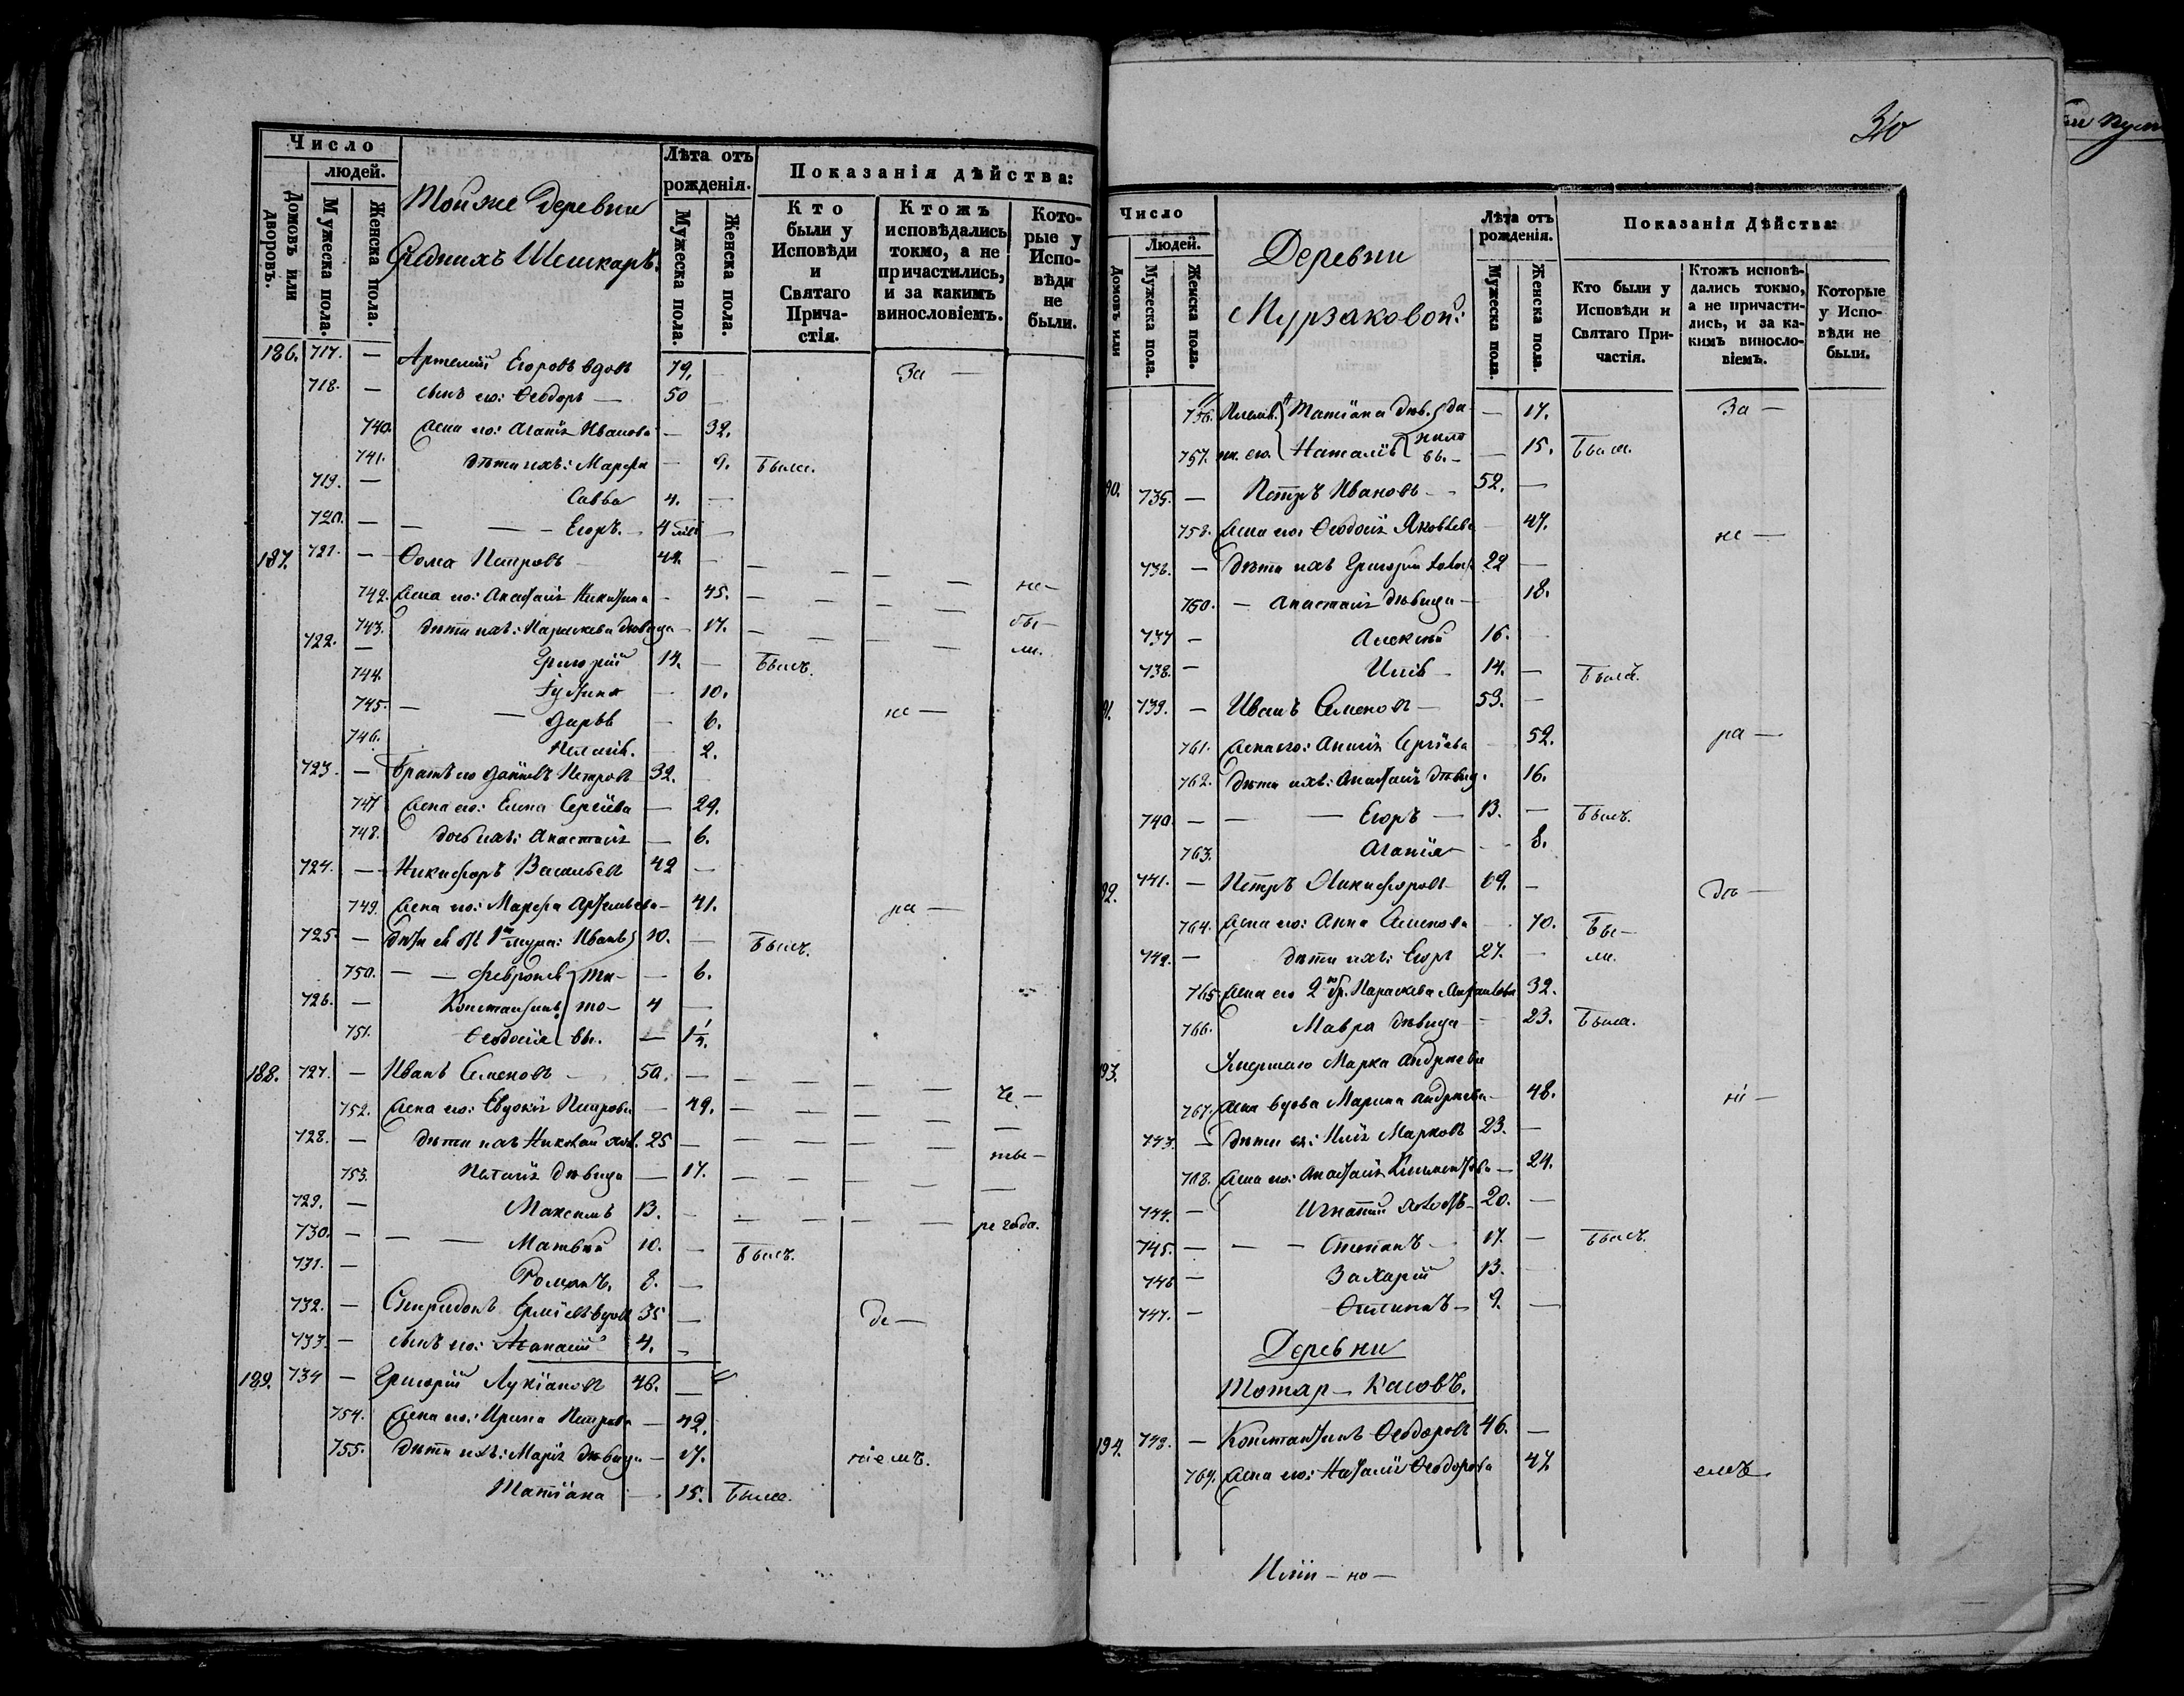 Число
людей.
Домовъ или дворовъ.
Мужеска пола.
Женска пола.
Тойже Деревни
Среднихъ Шешкаръ.
Лѣта отъ рожденія.
Мужеска пола.
Женска пола.
Показанія дѣйства:
Кто были у Исповѣди и Святаго Прича-стія.
Ктожъ исповѣдались токмо, а не причастились, и за какимъ винословіемъ.
Кото-рые у Испо-вѣди не были.
186. 717. — Артемій Егоровъ вдовъ 79. — За —
718. — сынъ его: Ѳеодоръ — 50
740. Жена его: Агапія Иванова — 32.
741. дѣти ихъ: Марѳа — 9. была.
719. — Савва 4. —
720. — Егоръ. 4 —
187. 721. — Ѳома Петровъ 44. —
742. Жена его: Анастасія Никитина — 45. — не-
743. дѣти ихъ: Параскева дѣвица — 17. — бы-
722. — Григорій 14. — былъ. ли.
744. Іустина — 10.
745. — Дарья — 6. не —
746. Пелагія. 2.
723. — Братъ его Даніилъ Петровъ 32.
747. Жена его: Елена Сергіева — 29.
748. дочь ихъ: Анастасія — 6.
724. — Никифоръ Васильевъ 42 —
749. Жена его: Марѳа Артемьева — 41. ра —
725. — Иванъ 10. — былъ.
750. — Февронія — 6.
726. — Константинъ 4 —
751. Ѳеодосія — 1¼.
188. 727. — Иванъ Семеновъ — 50. — че —
752. Жена его: Евдокія Петрова — 49. —
728. — дѣти ихъ Николай хол. 25 — ты-
753. Наталія дѣвица — 17. —
729. — Максимъ 13. — ре года.
730. — Матвѣй 10. — былъ.
731. — Романъ. 8. —
732. — Спиридонъ вдовъ 35 — де —
733. — сынъ его: Аѳанасій 4. —
189. 734 — Григорій Лукіановъ 46. —
754. Жена его: Ирина Петрова — 42.
755. дѣти ихъ: Марія дѣвица — 17. ніемъ.
Татіана — 15. была.
340
Число
Людей.
Домовъ или
Мужеска пола.
Женска пола.
Деревни
Мурзаковой:
Лѣта отъ рожденія.
Мужеска пола.
Женска пола.
Показанія Дѣйства:
Кто были у Исповѣди и Святаго При-частія.
Ктожъ исповѣ-дались токмо, а не причасти-лись, и за ка-кимъ виносло-віемъ.
Которые у Испо-вѣди не были.
756. Татіана дѣв. Да- — 17. За —
757. Наталія нило вы. — 15. была.
90. 735. — Петръ Ивановъ — 52. —
758. Жена его: Ѳеодосія Яковлева 47. не —
736. — дѣти ихъ Григорій холост. 22 —
750. — Анастасія дѣвица — 18.
737 — Алексѣй 16.
738. — Илія — 14. — былъ.
91. 739. — Иванъ Семеновъ — 53. —
761. Жена его: Анисія Сергіева 52. ра —
762. дѣти ихъ: Анастасія дѣвиц. 16.
740. — Егоръ — 13. — былъ.
763. Агапія — 8.
92. 741. — Петръ Никифоровъ — 69. — де —
764. Жена его: Анна Семенова 70. Бы-
742. — дѣти ихъ: Егоръ 27. — ли.
765. Жена его 2 бр. Параскева 32.
766. Мавра дѣвица — 23. была.
93. Умершаго Марка Андреева
767. Жена вдова Марина Андреева — 48. ні —
743. — дѣти ея: Илія Марковъ 23. —
718. Жена его: Анастасія Климентова — 24.
744. — Игнатій холостъ — 20. —
745. — Степанъ — 17. — былъ.
746 — Захарій 13.
747. — 9. —
Деревни
Тотар — Касовъ.
194. 748. — Константинъ Ѳеодоровъ 46. —
769. Жена его: Наталія Ѳеодорова 47. емъ.